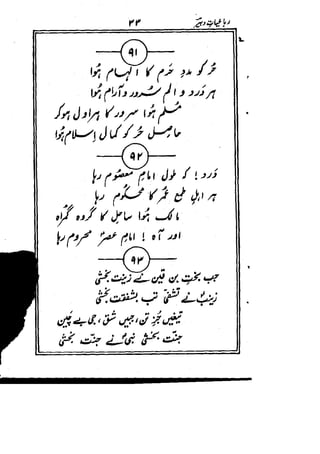 رباعیاتِ دبیر
۳۳
۹۱
حُر کو مددِ حرم کا الہام ہوا
ہر درد و الم سرور و آرام ہوا
مسلم ہوا سرور کا ہراول ہوکر
حاصل حُر کو کمالِ اسلام ہوا
۹۲
درد! کو طول امامِ معصوم رہا
ہر اہلِ طمع عمر کا محکوم رہا
مالک ہوا ساحل کا گروہِ گمراہ
اور آہ! امامِ عصرؑ محروم رہا
۹۳
جب بن قین نے زینت بخشی
زینبؑ نے تشفی تب بشفقت بخشی
تیغیں جُز تن، جبیں شق، جی بے چین
جنت بخشی نبیؐ نے جنت بخشی